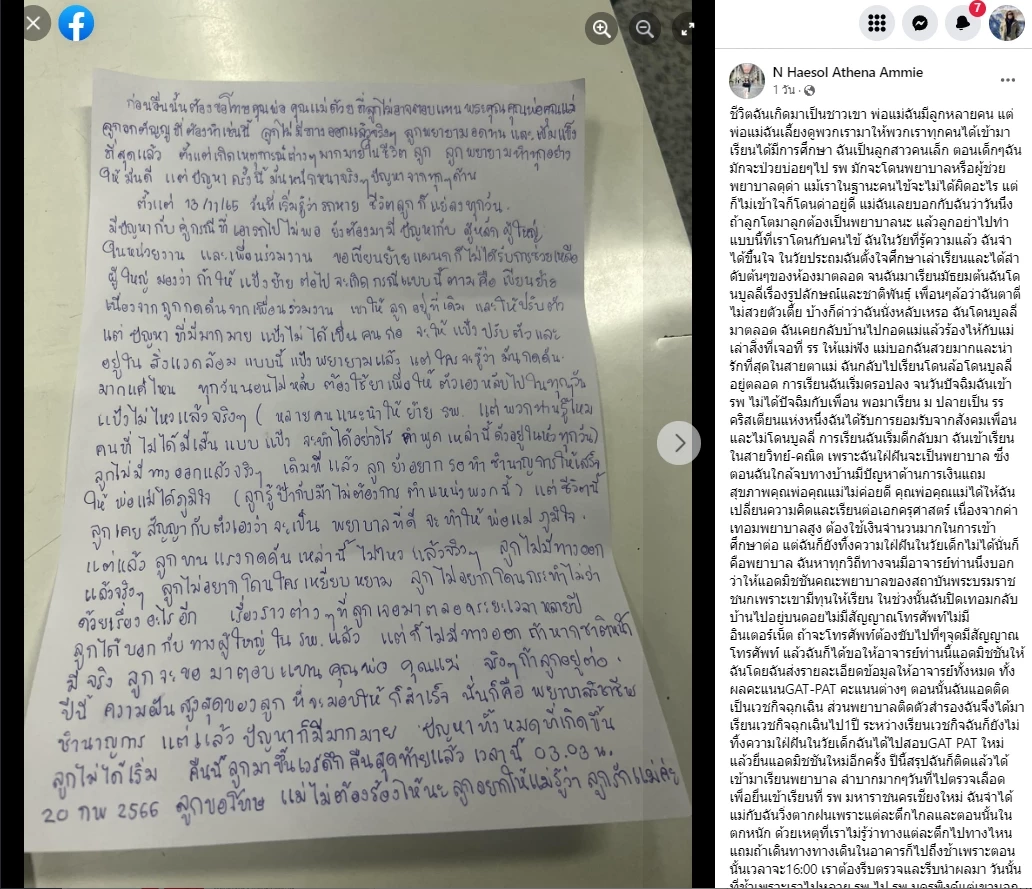 ก่อนอื่นนั้นต้องขอโทษคุณพ่อ คุณแม่ด้วย ที่ลูกไม่อาจตอบแทน พระคุณคุณพ่อคุณแม่
ลูกอกตัญญูที่ต้องทำเช่นนี้ ลูกไม่มีทางออกแล้วจริงๆ ลูกพยายามอดทน และ เข้มแข็ง
ที่สุดแล้ว ตั้งแต่เกิดเหตุการณ์ต่างๆมากมายในชีวิต ลูก ลูกพยายามทำทุกอย่าง
ให้ มันดี แต่ ปัญหา ครั้งนี้ มันหนักหนาจริงๆ ปัญหาจากทุกๆด้าน
ตั้งแต่ 13/11/65 วันที่เริ่มรู้ว่า รถหาย ชีวิตลูกก็แย่ลงทุกวัน
มีปัญหากับ คู่กรณีที่เอารถไปไม่พอ ยังต้องมามีปัญหากับ ผู้หลักผู้ใหญ่
ในหน่วยงาน และเพื่อนร่วมงาน ขอเขียนย้ายแผนกก็ไม่ได้รับการช่วยเหลือ
ผู้ใหญ่ มองว่า ถ้าให้ แป้งย้าย ต่อไปจะเกิดกรณีแบบนี้ ตามคือ เขียนย้าย
เนื่องจาก ถูกกดดันจากเพื่อนร่วมงาน เขาให้ ลูก อยู่ที่เดิม และให้ปรับตัว
แต่ ปัญหา ที่มีมากมาย แป้งไม่ได้เป็นคนก่อ จะให้ แป้งปรับตัวและ
อยู่ใน สิ่งแวดล้อม แบบนี้ แป้งพยายามแล้ว แต่ใครจะรู้ว่า มันกดดัน
มากแค่ไหน ทุกวันนอนไม่หลับ ต้องใช้ยาเพื่อให้ ตัวเองหลับไปในทุกวัน
แป้งไม่ไหวแล้วจริงๆ ( หลายคนแนะนำให้ ย้าย รพ. แต่ พวกท่านรู้ไหม
คนที่ ไม่ได้มีเส้น แบบ แป้ง จะทำได้อย่างไร คำพูด เหล่านี้ดังอยู่ในหัวทุกวัน)
ลูกไม่มีทางออกแล้วจริงๆ เดิมที แล้ว ลูก ยังอยาก รอ ทำ ชำนาญการให้เสร็จ
ให้ พ่อแม่ได้ภูมิใจ (ลูกรู้ป๊ากับม๊าไม่ต้องการ ตำแหน่งพวกนี้) แต่ชีวิตนี้
ลูกเคย สัญญากับตัวเองว่า จะเป็น พยาบาลที่ดี จะทำให้ พ่อแม่ ภูมิใจ
แต่แล้ว ลูกทนแรงกดดันเหล่านี้ ไม่ไหว แล้วจริงๆ ลูกไม่มีทางออก
แล้วจริงๆ ลูกไม่อยากโดนใครเหยียบหยาม ลูกไม่อยากโดนกระทำไม่ว่า
ด้วยเรื่อง อะไรอีก เรื่องราวต่างๆที่ลูกเจอมาตลอดระยะเวลาหลายปี
ลูกได้บอกกับ ทางผู้ใหญ่ใน รพ. แล้ว แต่ก็ไม่มีทางออก ถ้าหากชาติหน้า
มีจริง ลูกจะขอ มาตอบแทนคุณพ่อ คุณแม่ จริงๆถ้าลูกอยู่ต่อ
ปีนี้ ความฝันสูงสุดของลูก ที่จะมอบให้ ก็สำเร็จ นั่นก็คือ พยาบาลวิชาชีพ
ชำนาญการ แต่แล้ว ปัญหาก็มีมากมาย ปัญหาทั้งหมดที่เกิดขึ้น
ลูกไม่ได้เริ่ม คืนนี้ลูกมาขึ้นเวรดึกคืนสุดท้ายแล้ว เวลานี้ 03.03 น.
20 กพ 2566 ลูกขอโทษ แม่ไม่ต้องร้องไห้นะ ลูกอยากให้แม่รู้ว่า ลูกรักแม่ค่ะ
7
N Haesol Athena Ammie
1 วัน
ชีวิตฉันเกิดมาเป็นชาวเขา พ่อแม่ฉันมีลูกหลายคน แต่
พ่อแม่ฉันเลี้ยงดูพวกเรามาให้พวกเราทุกคนได้เข้ามา
เรียนได้มีการศึกษา ฉันเป็นลูกสาวคนเล็ก ตอนเด็กๆฉัน
มักจะป่วยบ่อยๆไป รพ มักจะโดนพยาบาลหรือผู้ช่วย
พยาบาลดุด่า แม้เราในฐานะคนไข้จะไม่ได้ผิดอะไร แต่
ก็ไม่เข้าใจก็โดนด่าอยู่ดี แม่ฉันเลยบอกกับฉันว่าวันนึง
ถ้าลูกโตมาลูกต้องเป็นพยาบาลนะ แล้วลูกอย่าไปทำ
แบบนี้ที่เราโดนกับคนไข้ ฉันในวัยที่รู้ความแล้ว ฉันจำ
ได้ขึ้นใจ ในวัยประถมฉันตั้งใจศึกษาเล่าเรียนและได้ลำ
ดับต้นๆของห้องมาตลอด จนฉันมาเรียนมัธยมต้นฉันโด
นบูลลี่เรื่องรูปลักษณ์และชาติพันธุ์ เพื่อนๆล้อว่าฉันตาตี่
ไม่สวยตัวเตี้ย บ้างก็ด่าว่าฉันนั่งหลับเหรอ ฉันโดนบูลลี่
มาตลอด ฉันเคยกลับบ้านไปกอดแม่แล้วร้องไห้กับแม่
เล่าสิ่งที่เจอที่ รร ให้แม่ฟัง แม่บอกฉันสวยมากและน่า
รักที่สุดในสายตาแม่ ฉันกลับไปเรียนโดนล้อโดนบูลลี่
อยู่ตลอด การเรียนฉันเริ่มดรอปลง จนวันปัจฉิมฉันเข้า
รพ ไม่ได้ปัจฉิมกับเพื่อน พอมาเรียน ม ปลายเป็น รร
คริสเตียนแห่งหนึ่งฉันได้รับการยอมรับจากสังคมเพื่อน
และไม่โดนบูลลี่ การเรียนฉันเริ่มดีกลับมา ฉันเข้าเรียน
ในสายวิทย์-คณิต เพราะฉันใฝ่ฝันจะเป็นพยาบาล ซึ่ง
ตอนฉันใกล้จบทางบ้านมีปัญหาด้านการเงินแถม
สุขภาพคุณพ่อคุณแม่ไม่ค่อยดี คุณพ่อคุณแม่ได้ให้ฉัน
เปลี่ยนความคิดและเรียนต่อเอกครุศาสตร์ เนื่องจากค่า
เทอมพยาบาลสูง ต้องใช้เงินจำนวนมากในการเข้า
ศึกษาต่อ แต่ฉันก็ยังทิ้งความใฝ่ฝันในวัยเด็กไม่ได้นั่นก็
คือพยาบาล ฉันหาทุกวิถีทางจนมีอาจารย์ท่านนึงบอก
ว่าให้แอดมิชชันคณะพยาบาลของสถาบันพระบรมราช
ชนกเพราะเขามีทุนให้เรียน ในช่วงนั้นฉันปิดเทอมกลับ
บ้านไปอยู่บนดอยไม่มีสัญญาณโทรศัพท์ไม่มี
อินเตอร์เน็ต ถ้าจะโทรศัพท์ต้องขับไปที่ๆจุดมีสัญญาณ
โทรศัพท์ แล้วฉันก็ได้ขอให้อาจารย์ท่านนี้แอดมิชชันให้
ฉันโดยฉันส่งรายละเอียดข้อมูลให้อาจารย์ทั้งหมด ทั้ง
ผลคะแนนGAT-PAT คะแนนต่างๆ ตอนนั้นฉันแอดติด
เป็นเวชกิจฉุกเฉิน ส่วนพยาบาลติดตัวสำรองฉันจึงได้มา
เรียนเวชกิจฉุกเฉินไป1ปี ระหว่างเรียนเวชกิจฉันก็ยังไม่
ทิ้งความใฝ่ฝันในวัยเด็กฉันได้ไปสอบGAT PAT ใหม่
แล้วยื่นแอดมิชชันใหม่อีกครั้ง ปีนี้สรุปฉันก็ติดแล้วได้
เข้ามาเรียนพยาบาล ลำบากมากๆวันที่ไปตรวจเลือด
เพื่อยื่นเข้าเรียนที่ รพ มหาราชนครเชียงใหม่ ฉันจำได้
แม่กับฉันวิ่งตากฝนเพราะแต่ละตึกไกลและตอนนั้นใน
ตกหนัก ด้วยเหตุที่เราไม่รู้ว่าทางแต่ละตึกไปทางไหน
แถมถ้าเดินทางทางเดินในอาคารก็ไปถึงช้าเพราะตอน
นั้นเวลาจะ16:00 เราต้องรีบตรวจและรีบนำผลมา วันนั้น